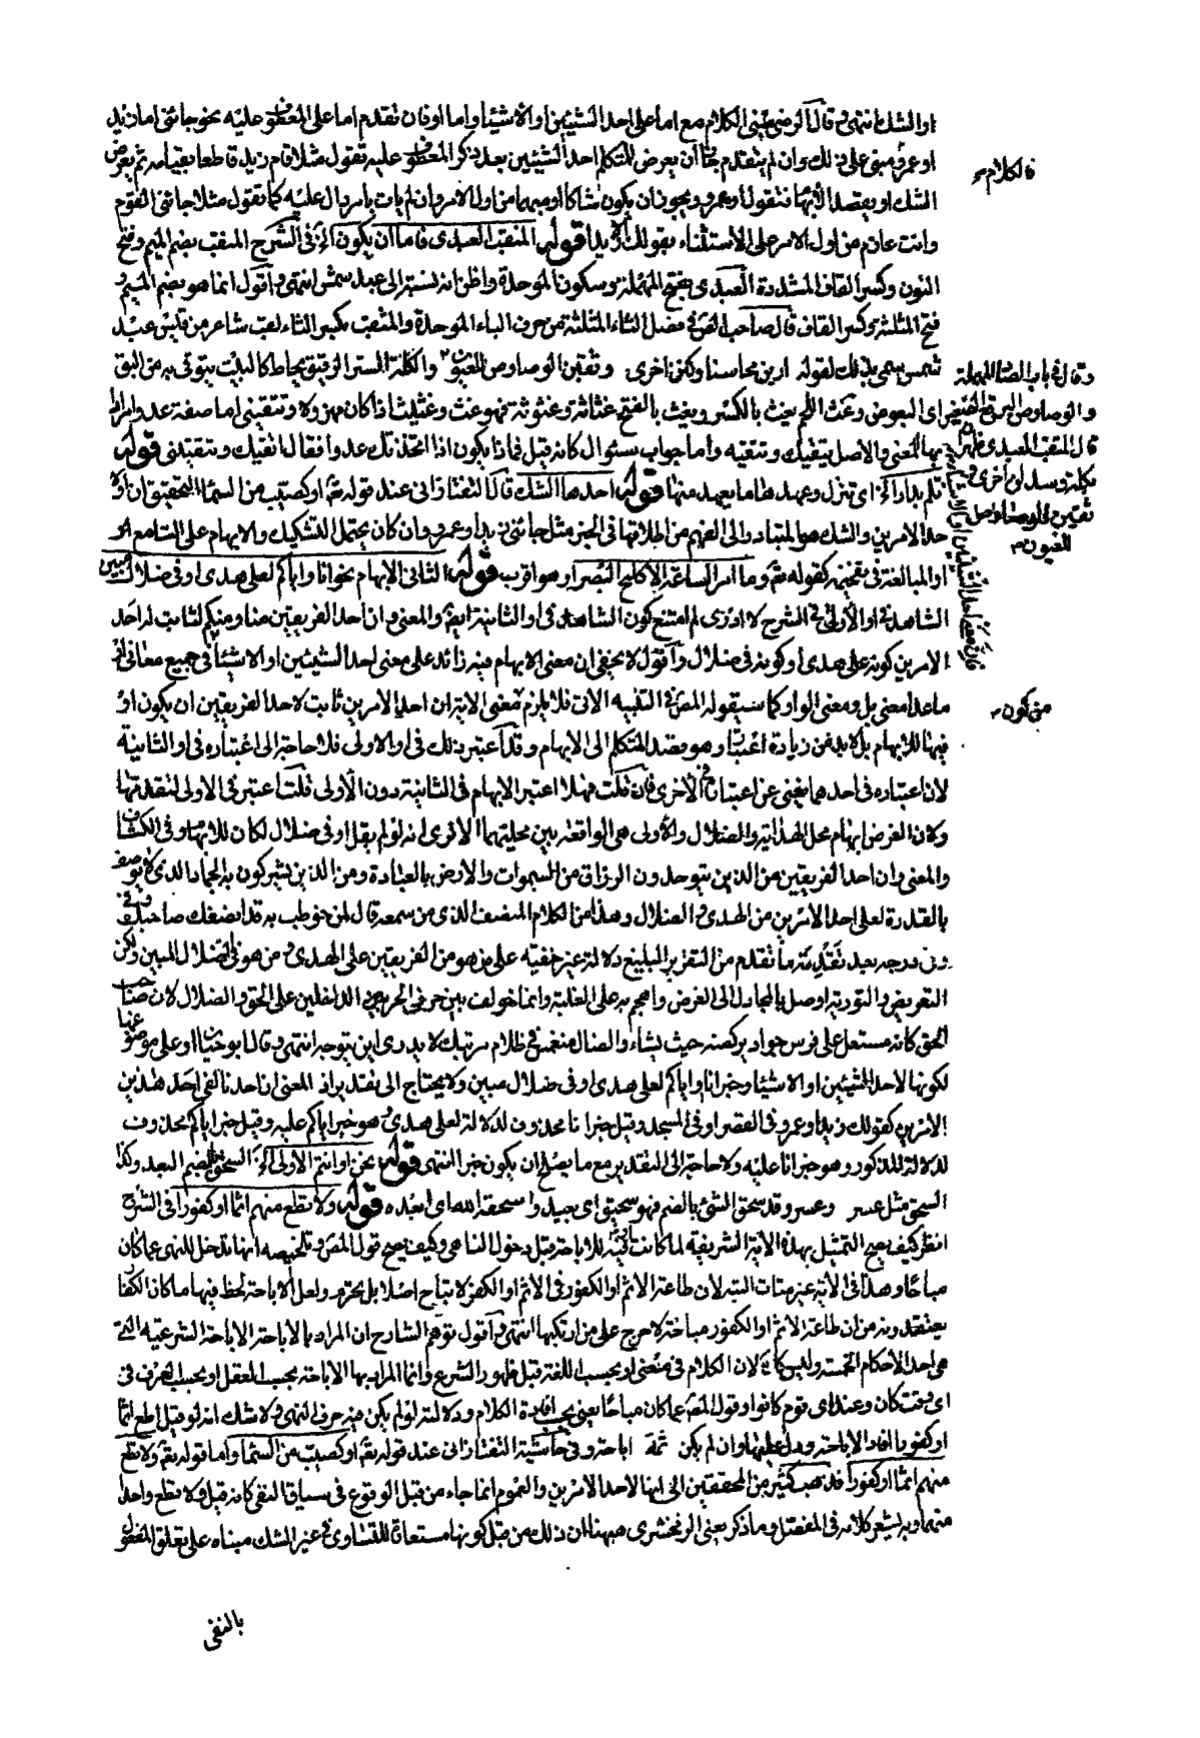 او الشك انتهى وقال الرضى مبنى الكلام مع اما على احد الشيئين او الاشياء واما او فان تقدم اما على المعطوف عليه نحو جائنى اما زيد
او عمرو مبنى على ذلك وان لم يتقدم جاز ان يعرض للمتكلم احد الشيئين بعد ذكر المعطوف عليه تقول مثلا قام زيد قاطعا بقيامه ثم يعرض
فالكلام
الشك او يقصد الابهام فتقول او عمرو ويجوز ان يكون شاكا او مبهما من اول الامر وان لم يات بامر دال عليه كما تقول مثلا جائنى القوم
وانت عازم من اول الامر على الاستثناء بقولك الا زيدا قوله المنقب العبدى فاما ان يكون الخ فى الشرح المنقب بضم الميم وفتح
النون وكسر القاف المشددة العبدى بفتح المهملة وسكون الموحدة واظن انه نسبة الى عبد شمس انتهى واقول انما هو بضم الميم و
فتح المثلثة وكسر القاف قال صاحب فى فصل الثاء المثلثة من حرف الباء الموحدة والمثقب بكسر الثاء لقب شاعر من قيس عبد
شمس سمى بذلك لقوله ارين محاسنا وكنن اخرى وثقبن الوصاوص للعيون والكلة الستر الرقيق يخاط كالبيت يتوقى به من البق
وقال فى باب الصاد المهملة
والوصاوص البرقع الصغير
اى البعوض وغث اللحم يغث بالكسر ويغث بالفتح غثاثة وغثوثة فهو غث وغثيث اذا كان مهزولا وتتقينى اما صفة عدوا مرادا
قال المثقب العبدى ظهرن
بها المعنى والاصل يتقيك وتتقيه واما جواب سئوال كانه قيل فماذا يكون اذا اتخذتك عدوا فقال اتقيك وتتقينى قوله
بكلة وسدلن اخرى و
تلم بدار الخ اى تنزل وعهدها ما يعهد منها قوله احدها الشك قال التفتازانى عند قوله تعه او كصيب من السماء التحقيق ان او لا
ثقبن الوصاوص
للعيون
حد الامرين والشك هو المتبادر الى الفهم من اطلاقها فى الخبر مثل جائنى زيد او عمرو وان كان يحتمل التشكيك والابهام على السامع
او المبالغة فى كقوله تعه وما امر الساعة الا كلمح البصر او هو اقرب قوله الثانى الابهام نحو انا واياكم لعلى هدى او فى ضلال مبين
الشاهد فى او الاولى فى الشرح لا ادرى لم امتنع كون الشاهد فى او الثانية ايضا والمعنى وان احد الفريقين منا ومنكم لثابت له احد
الامرين كونه على هدى او كونه فى ضلال واقول لا يخفى ان معنى الابهام فيه زائد على معنى احد الشيئين او الاشياء فى جميع معانى او
ما عدا معنى بل ومعنى الواو كما سيقوله المص فى التنبيه الاتى فلا يلزم معنى الاية ان احد الامرين ثابت لاحد الفريقين ان يكون او
من كون
فيها للابهام بل لا بد من زيادة اعتبار وهو قصد المتكلم الى الابهام وقد اعتبر ذلك فى او الاولى فلا حاجة الى اعتباره فى او الثانية
لان اعتباره فى احدهما يغنى عن اعتباره فى الاخرى فان قلت فهلا اعتبر الابهام فى الثانية دون الاولى قلت اعتبر فى الاولى لتقدمها
وكان الغرض ابهام محل الهداية والضلال والاولى هى الواقعة بين محليهما الا ترى انه لو لم يقل او فى ضلال لكان للابهام وفى الكشاف
والمعنى وان احد الفريقين من الذين يتوحدون الرزاق من السموات والارض بالعبادة ومن الذين يشركون به الجماد الذى لا يوصف
بالقدرة لعلى احد الامرين من الهدى والضلال وهذا من الكلام المنصف الذى من سمعه قال لمن خوطب به قد انصفك صاحبك
وفى درجه بعد تقدمة ما تقدم من التقرير البليغ دلالة غير خفية على من هو من الفريقين على الهدى ومن هو فى الضلال المبين ولكن
التعريض والتورية اوصل بالمجادل الى الغرض واهجم به على الغلبة وانما خولف بين حرفى الجر الداخلين على الحق والضلال لان صاحب
الحق كانه مستعل على فرس جواد يركضه حيث يشاء والضال منغمس فى ظلام مرتبك لا يدرى اين يتوجه انتهى وقال ابو حيان او على موضوعها
لكونها لاحد الشيئين او الاشياء وخبر انا واياكم لعلى هدى او فى ضلال مبين ولا يحتاج الى تقدير اذ المعنى ان احدنا لفى احد هذين
الامرين كقولك زيد او عمرو فى القصر او فى المسجد وقيل خبر انا محذوف لدلالة لعلى هدى وهو خبر اياكم عليه وقيل خبر اياكم محذوف
لدلالة المذكور وهو خبر انا عليه ولا حاجة الى التقدير مع ما يصلح ان يكون خبرا انتهى قوله نحن او انتم الاولى الخ السحق بالضم البعد وكذا
السحق مثل عسر وعسر وقد سحق الشئ بالضم فهو سحيق اى بعيد واسحقه الله اى ابعده قوله ولا تطع منهم اثما او كفورا فى الشرح
انظر كيف يصح التمثيل بهذه الاية الشريفة لما كانت فيه للاباحة قبل دخول الناهى وكيف يصح قول المص وتلخيصه انها تدخل للنهى عما كان
مباحا وهذا فى الاية غير متات البتة لان طاعة الاثم او الكفور فى الاثم او الكفر لا تباح اصلا بل تحرم ولعل الاباحة لحظ فيها ما كان الكفار
يعتقدونه من ان طاعة الاثم او الكفور مباحة لا حرج على من ارتكبها انتهى واقول توهم الشارح ان المراد بالاباحة الاباحة الشرعية التى
هى احد الاحكام الخمسة وليس كذلك لان الكلام فى معنى او بحسب اللغة قبل ظهور الشرع وانما المراد بها الاباحة بحسب العقل او بحسب العرف فى
اى وقت كان وعند اى قوم كانوا وقول المص عما كان مباحا يعنى بحسب افادة الكلام ودلالته لو لم يكن فيه حرف النهى ولا شك انه لو قيل اطع اثما
او كفورا افاد الاباحة ودل عليها وان لم يكن ثمة اباحة وفى حاشية التفتازانى عند قوله تعه او كصيب من السماء واما قوله تعه ولا تطع
منهم اثما او كفورا فقد ذهب كثير من المحققين الى انها لاحد الامرين والعموم انما جاء من قبل الوقوع فى سياق النفى كانه قيل ولا تطع واحدا
منهما وبه يشعر كلامه فى المفصل وما ذكر يعنى الزمخشرى ههنا ان ذلك من قبل كونها مستعارة للتساوى فى غير الشك مبناه على تعلق المفعول
بالنفى